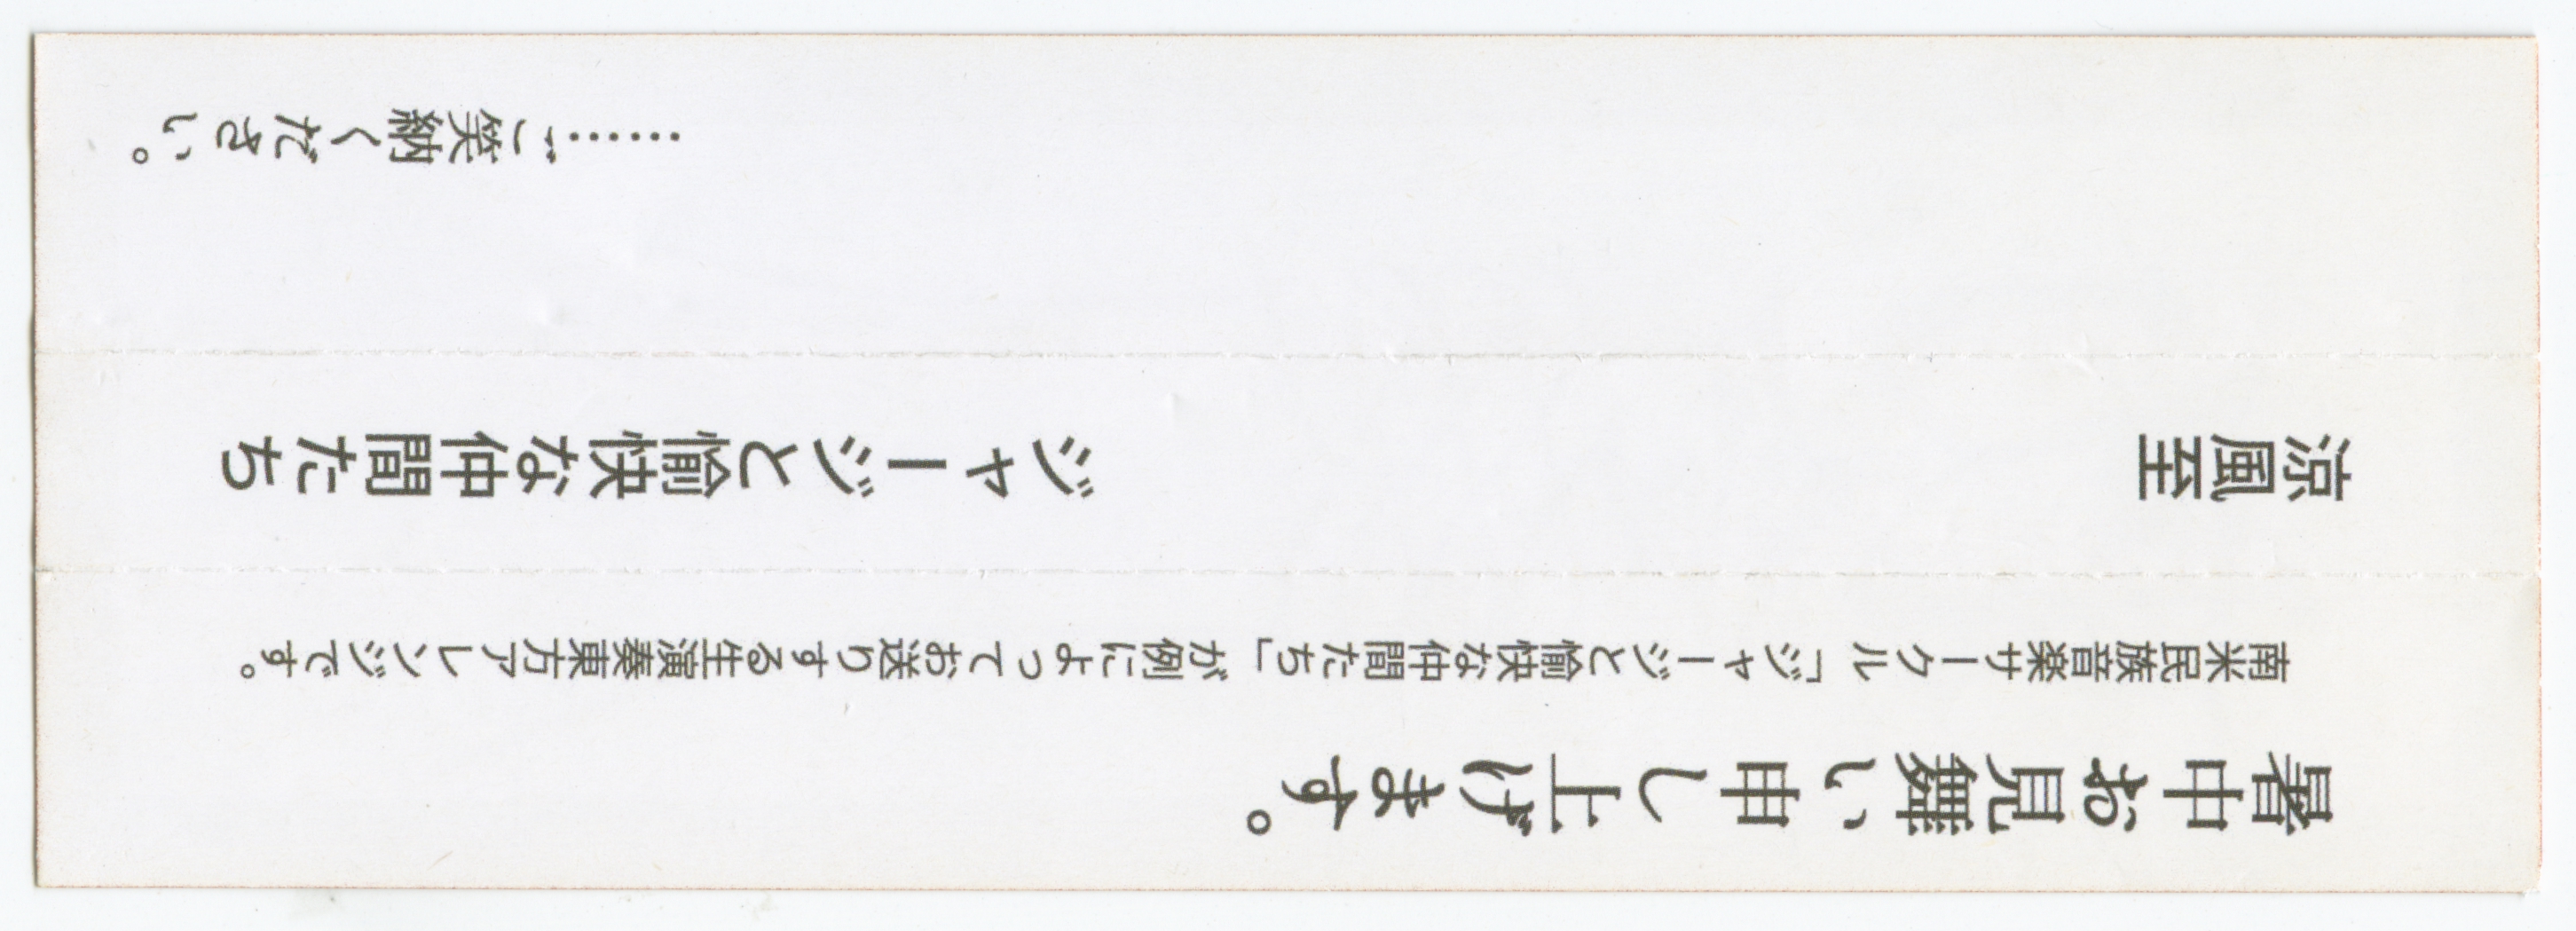 暑中お見舞い申し上げます。
南米民族音楽サークル「ジャージと愉快な仲間たち」が例によってお送りする生演奏東方アレンジです。
涼風至 ジャージと愉快な仲間たち
……ご笑納ください。